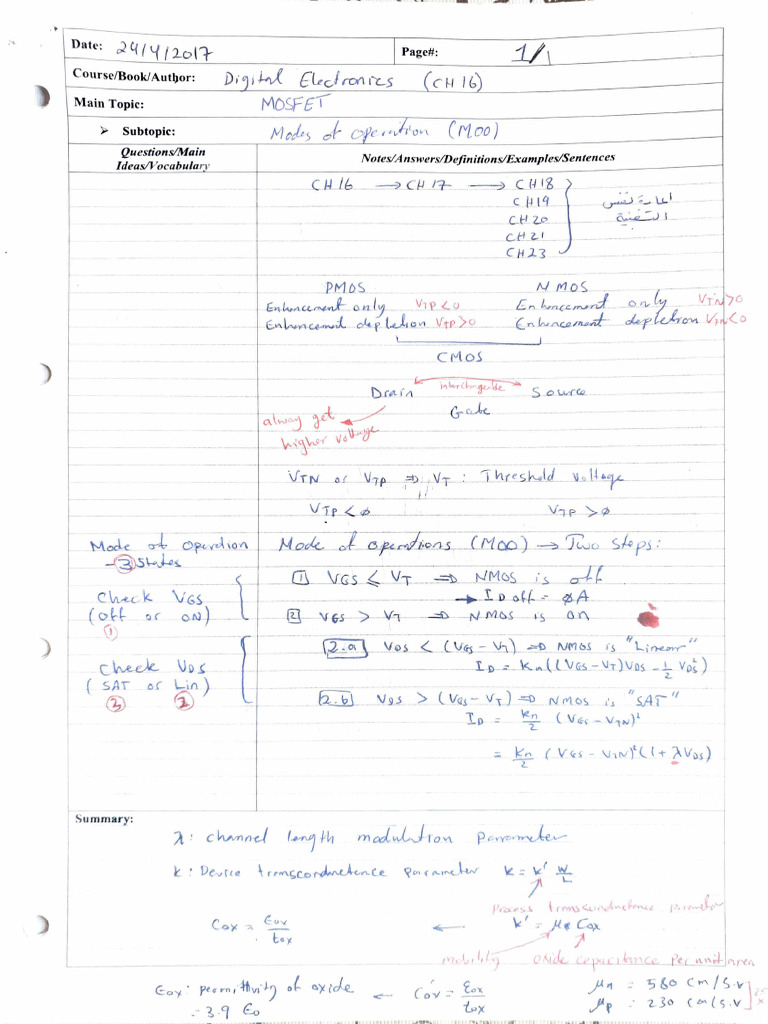 Date: 24/4/2017 Page#: 1/1
Course/Book/Author: Digital Electronics (CH 16)
Main Topic: MOSFET
➢ Subtopic: Modes of operation (MOO)
Questions/Main Ideas/Vocabulary
Notes/Answers/Definitions/Examples/Sentences
CH16 → CH17 → CH18
CH19
CH20
CH21
CH23
إعادة نفس
التقنية
PMOS NMOS
Enhancement only VTP<0 Enhancement only VTN>0
Enhancement depletion VTP>0 Enhancement depletion VTN<0
CMOS
Drain interchangeable Source
Gate
alway get
higher voltage
VTN or VTP ⇒ VT : Threshold voltage
VTP < ø VTP > ø
Mode of operation
- 3 states
Mode of operations (MOO) → Two steps:
Check VGS
(Off or ON)
1
1 VGS ≤ VT ⇒ NMOS is off
→ ID off = ø A
2 VGS > VT ⇒ NMOS is on
Check VDS
(SAT or Lin)
3 2
2.a VDS < (VGS - VT) ⇒ NMOS is "Linear"
ID = Kn((VGS-VT)VDS - 1/2 VDS²)
2.b VDS > (VGS-VT) ⇒ NMOS is "SAT"
ID = Kn/2 (VGS-VTN)²
= Kn/2 (VGS-VTN)²(1+λVDS)
Summary:
λ: channel length modulation parameter
K: Device transconductance parameter K = K' W/L
Process transconductance parameter
Cox = Eox/tox ← K' = μ Cox
mobility oxide capacitance per unit area
Eox: permittivity of oxide ← Cox = Eox/tox
= 3.9 Eo
μn = 580 cm/S.V
μp = 230 cm/S.V